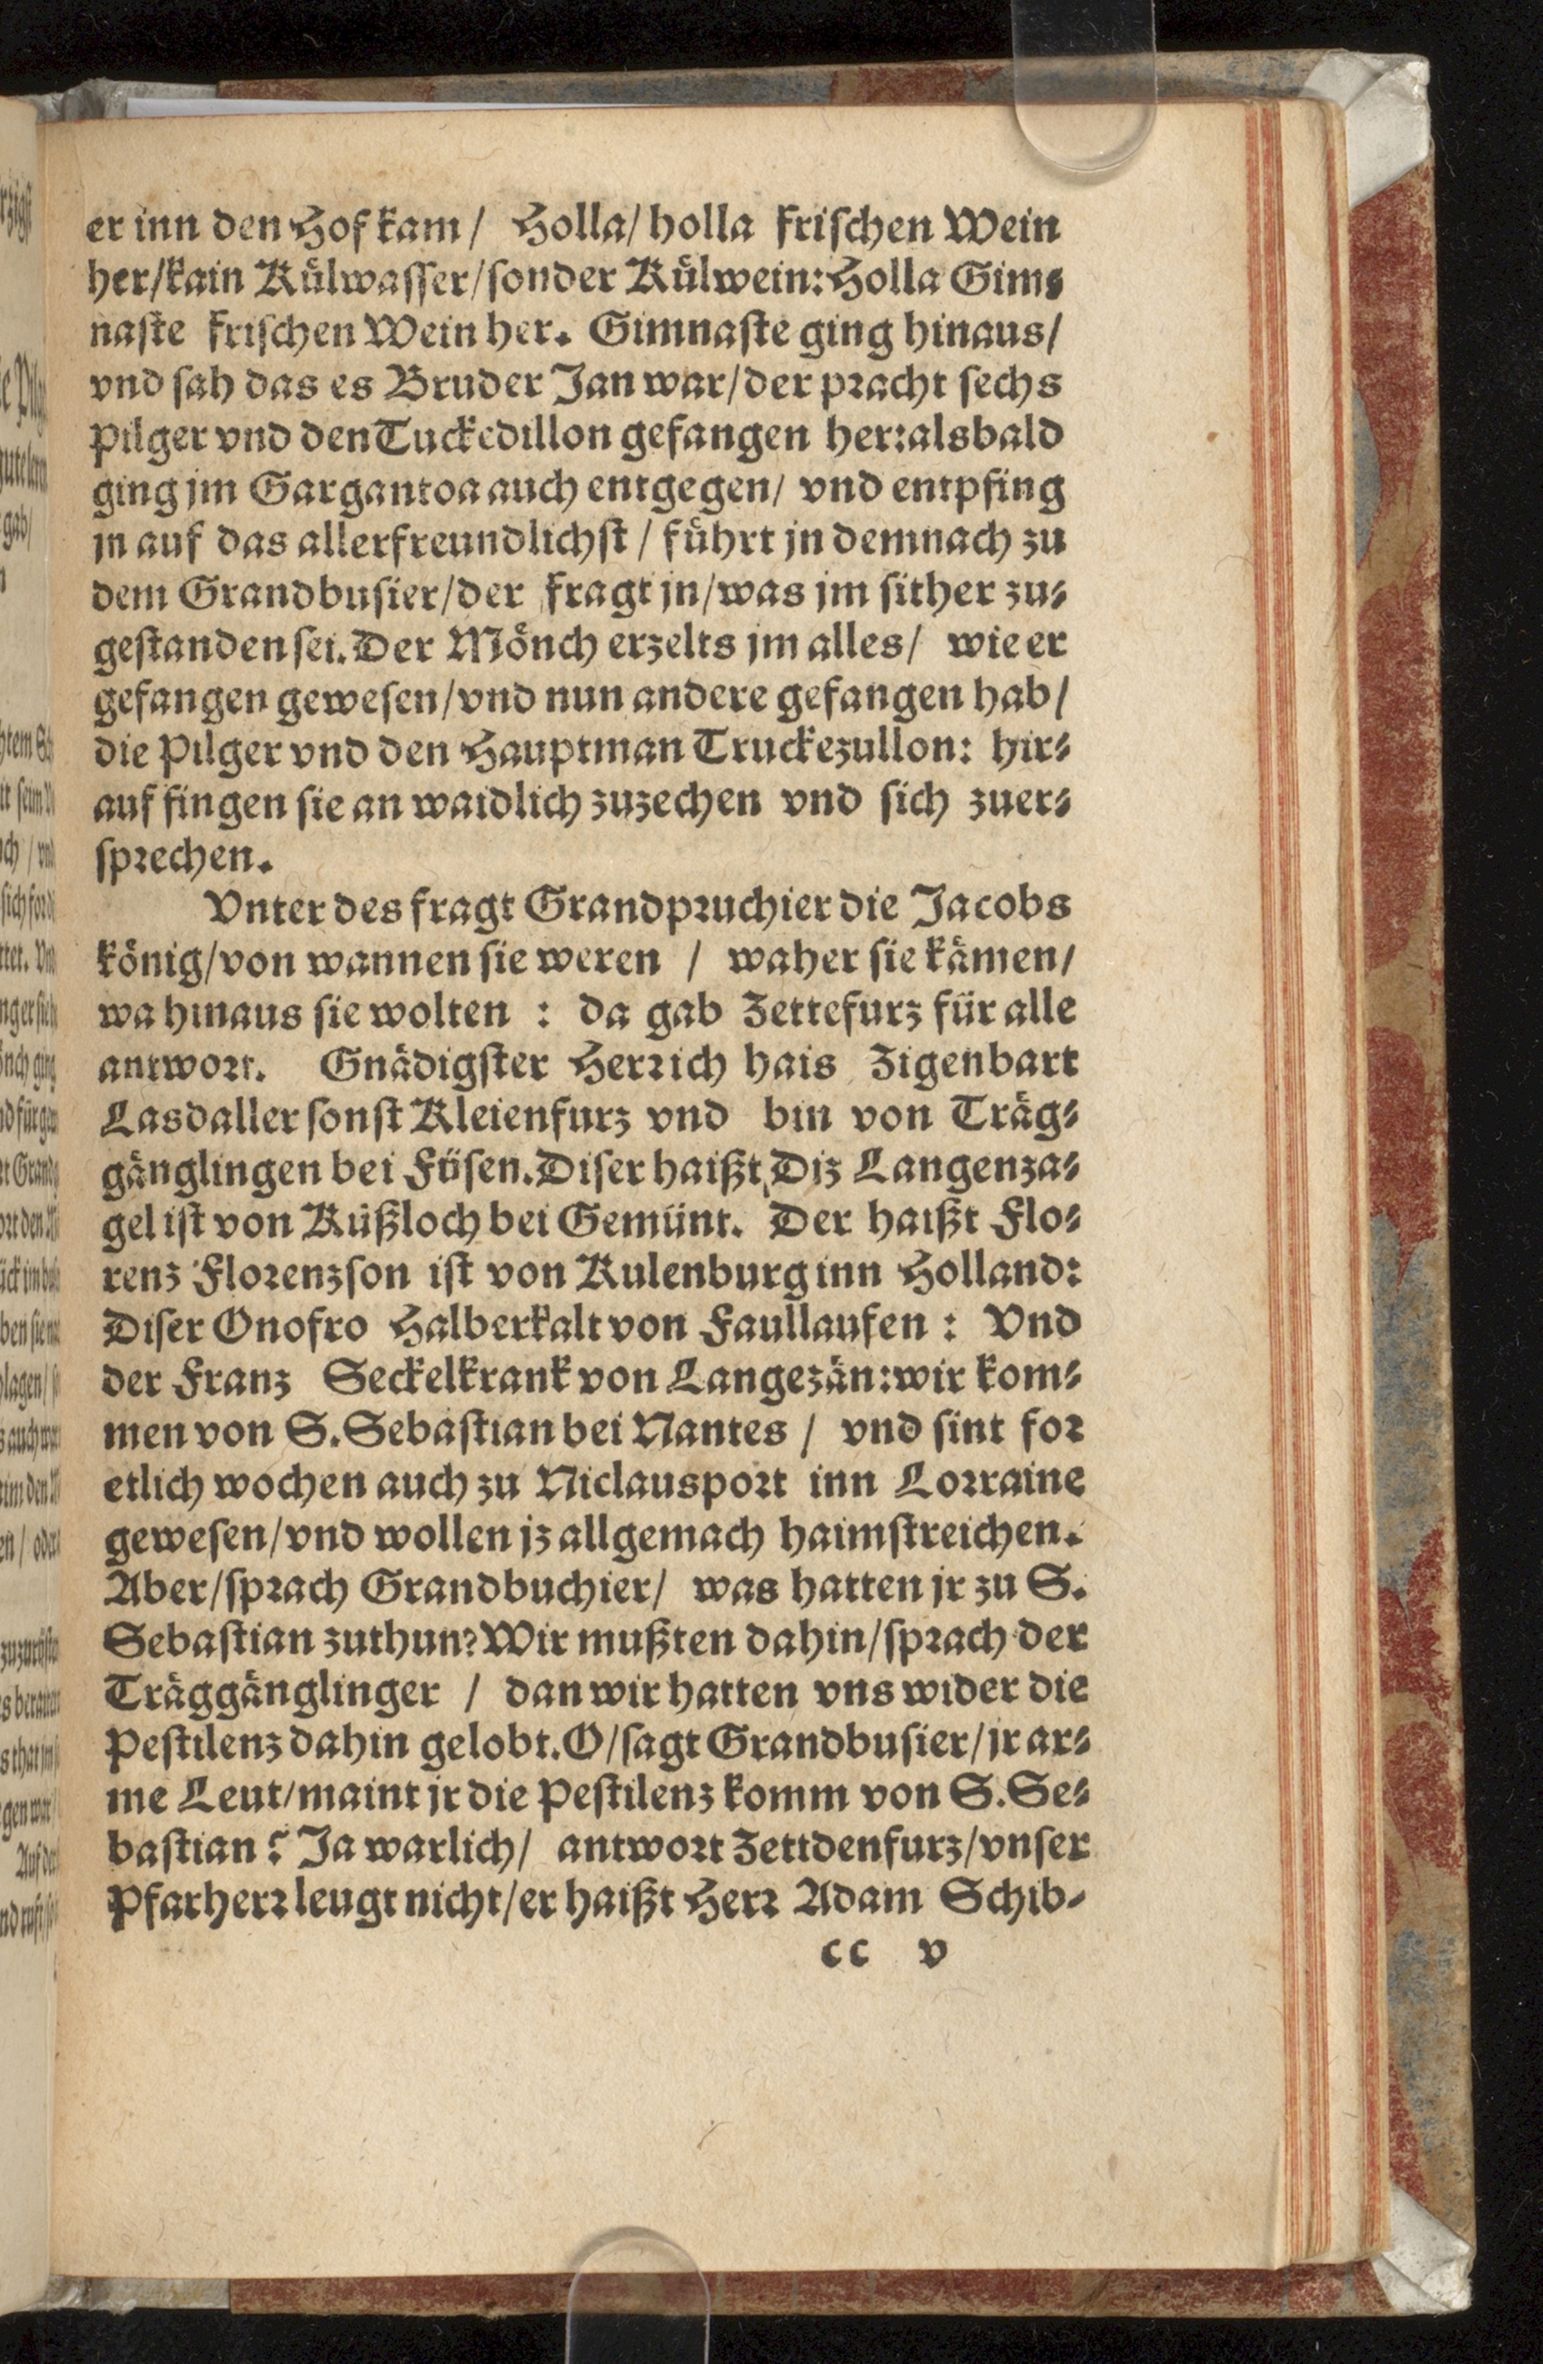 er inn den Hof kam/ Holla/ holla frischen Wein
her/kain Kůlwasser/sonder Kůlwein: Holla Gim⸗
naste frischen Wein her. Gimnaste ging hinaus/
vnd sah das es Bruder Jan war/der pracht sechs
Pilger vnd den Tuckedillon gefangen her: alsbald
ging jm Gargantoa auch entgegen/ vnd entpfing
jn auf das allerfreundlichst / fůhrt jn demnach zu
dem Grandbusier/der fragt jn/was jm sither zu⸗
gestanden sei. Der Mönch erzelts jm alles/ wie er
gefangen gewesen/vnd nun andere gefangen hab/
die Pilger vnd den Hauptman Truckezullon: hir⸗
auf fingen sie an waidlich zuzechen vnd sich zuer⸗
sprechen.
Vnter des fragt Grandpruchier die Jacobs
könig/von wannen sie weren / waher sie kämen/
wa hinaus sie wolten : da gab Zettefurz für alle
antwort. Gnädigster Herr ich hais Zigenbart
Lasdaller sonst Kleienfurz vnd bin von Träg⸗
gänglingen bei Füsen. Diser haißt Diz Langenza⸗
gel ist von Küßloch bei Gemünt. Der haißt Flo⸗
renz Florenzson ist von Kulenburg inn Holland:
Diser Onofro Halberkalt von Faullaufen : Vnd
der Franz Seckelkrank von Langezän: wir kom⸗
men von S. Sebastian bei Nantes / vnd sint for
etlich wochen auch zu Niclausport inn Lorraine
gewesen/vnd wollen jz allgemach haimstreichen.
Aber/sprach Grandbuchier/ was hatten jr zu S.
Sebastian zuthun? Wir mußten dahin/sprach der
Träggänglinger / dan wir hatten vns wider die
Pestilenz dahin gelobt. O/sagt Grandbusier/jr ar⸗
me Leut/maint jr die Pestilenz komm von S. Se⸗
bastian? Ja warlich/ antwort Zettdenfurz/vnser
Pfarherr leugt nicht/er haißt Herr Adam Schib⸗
cc v